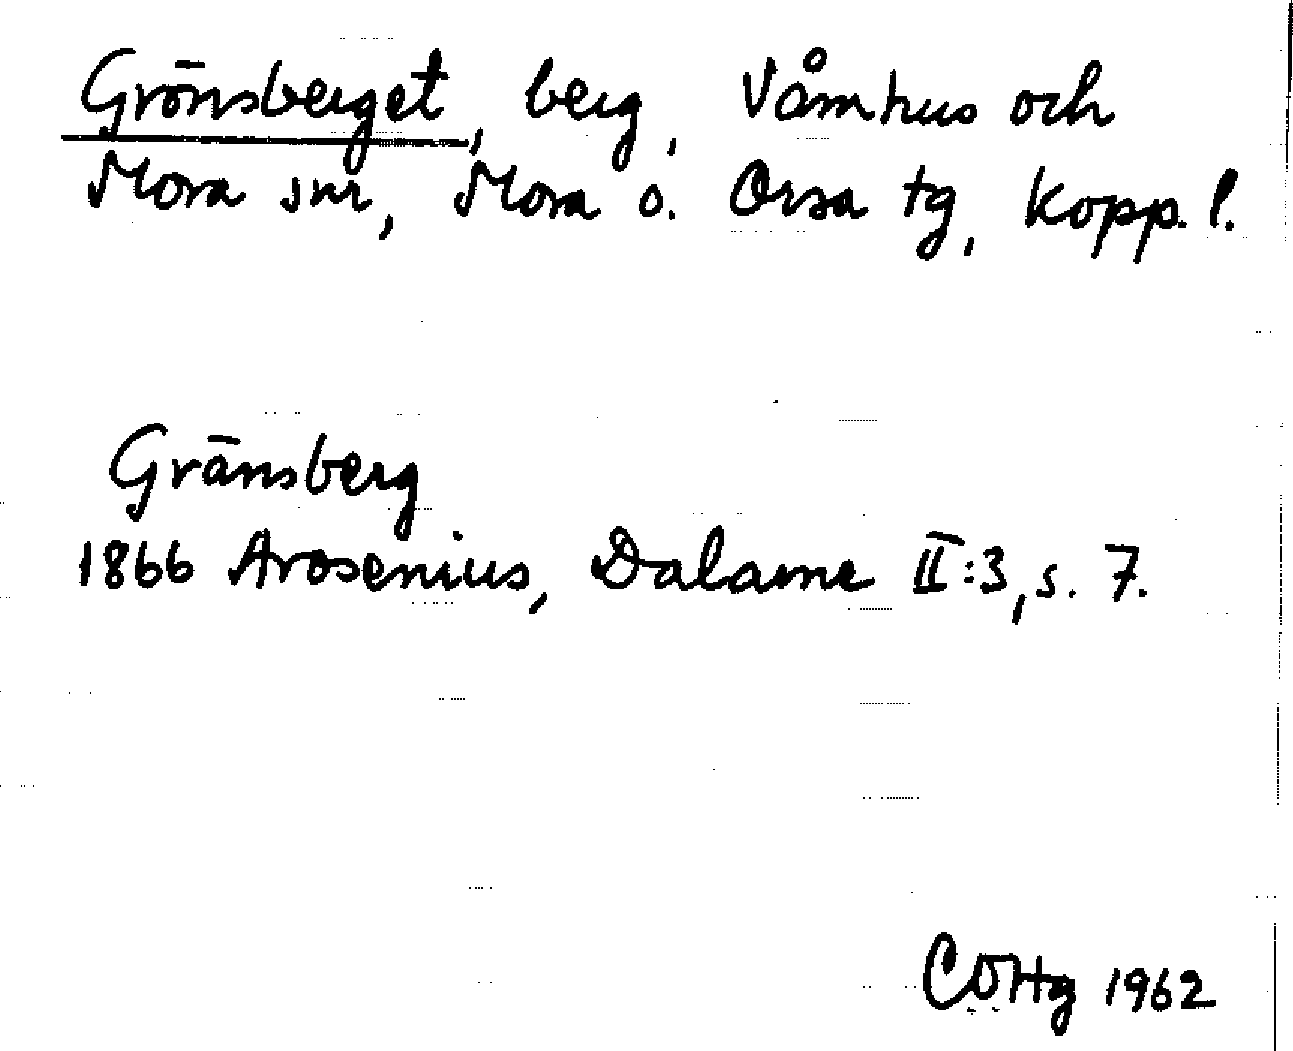 Grönsberget, berg, Våmhus och
Mora snr, Mora o. Orsa tg, Kopp. l.
Gränsberg
1866 Arosenius, Dalarne II:3, s. 7.
COHg 1962